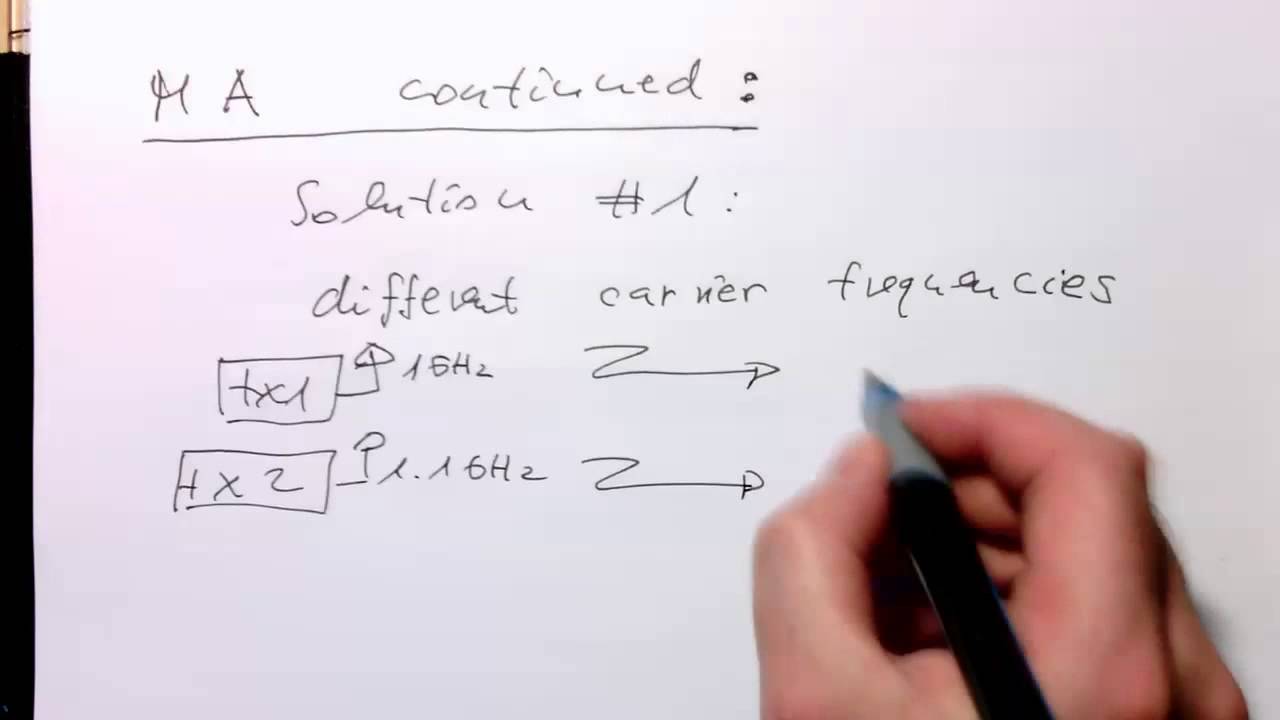 MA continued:
Solution #1:
different carrier frequencies
tx1 1GHz
tx2 1.1GHz